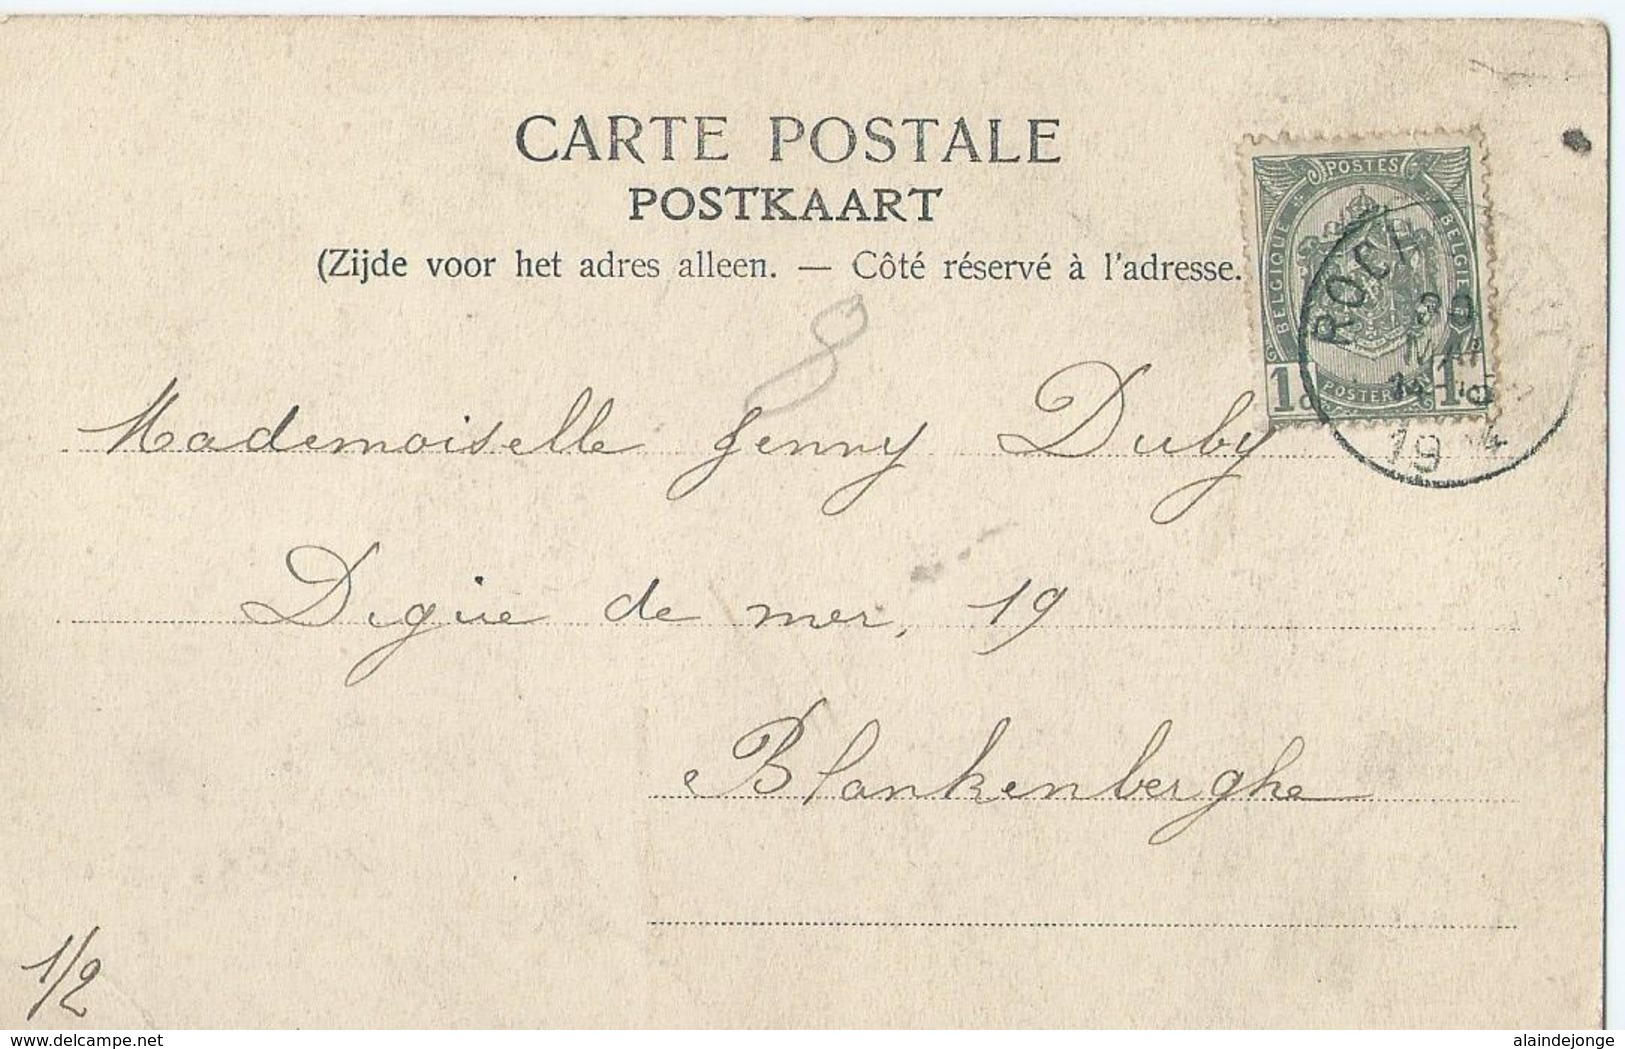 CARTE POSTALE
POSTKAART
(Zijde voor het adres alleen. — Côté réservé à l'adresse.
POSTES
BELGIQUE
BELGIE
1c
POSTERIJEN
1c
30
MAI
19 04
8
Mademoiselle Jenny Duby
Digue de mer, 19
Blankenberghe
1/2
www.delcampe.net
alaindejonge